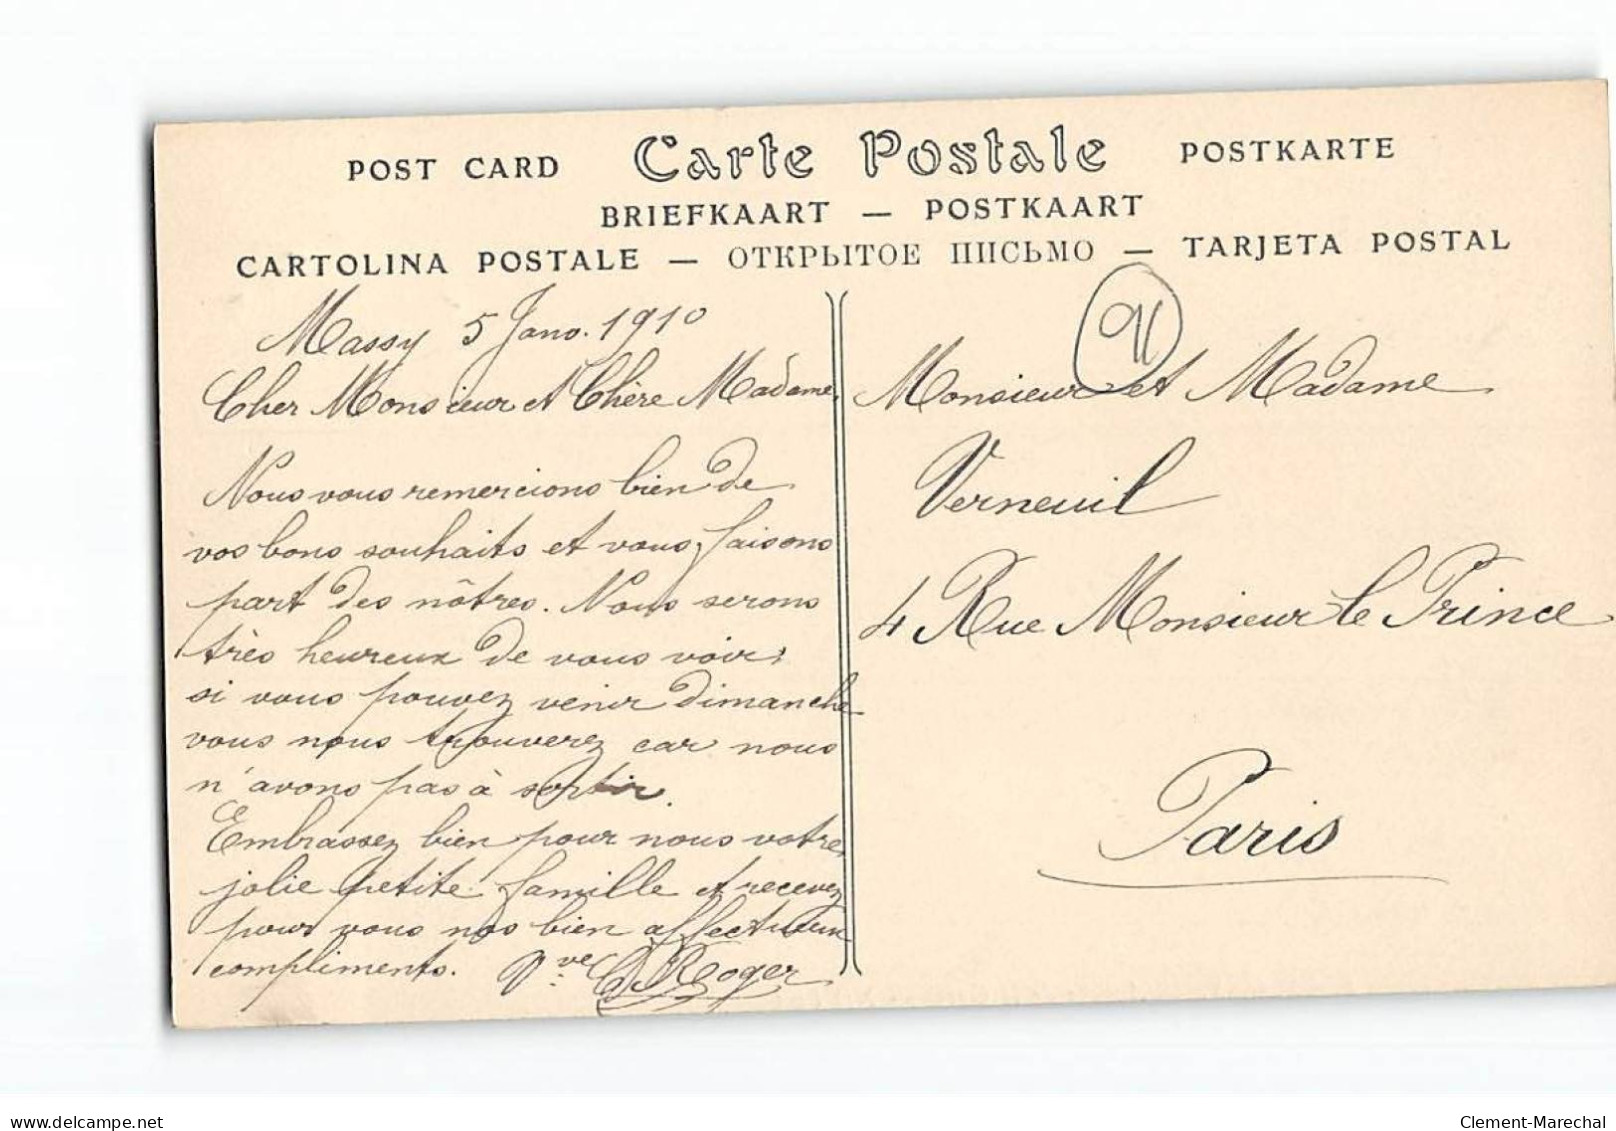 POST CARD Carte Postale POSTKARTE
BRIEFKAART — POSTKAART
CARTOLINA POSTALE — ОТКРЫТОЕ ПИСЬМО — TARJETA POSTAL
Massy 5 Janv. 1910
Cher Monsieur et Chère Madame,
Nous vous remercions bien de
vos bons souhaits et vous faisons
part des nôtres. Nous serons
très heureux de vous voir;
si vous pouvez venir dimanche
vous nous trouverez car nous
n'avons pas à sortir.
Embrassez bien pour nous votre
jolie petite famille et recevez
pour vous nos bien affectueux
compliments. Vve Roger
91
Monsieur et Madame
Verneuil
4 Rue Monsieur le Prince
Paris
www.delcampe.net
Clement-Marechal